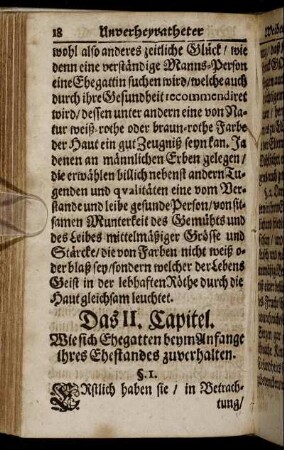 18 Unverheyratheter
wohl also anderes zeitliche Glück/ wie
denn eine verständige Manns-Person
eine Ehegattin suchen wird/ welche auch
durch ihre Gesundheit recommendiret
wird/ dessen unter andern eine von Na-
tur weiß-rothe oder braun-rothe Farbe
der Haut ein gut Zeugniß seyn kan. Ja
denen an männlichen Erben gelegen/
die erwählen billich nebenst andern Tu-
genden und qvalitäten eine vom Ver-
stande und leibe gesunde Person/ von sit-
samen Munterkeit des Gemühts und
des Leibes mittelmäßiger Grösse und
Stärcke/ die von Farben nicht weiß o-
der blaß sey/ sondern welcher der Lebens
Geist in der lebhafften Röthe durch die
Haut gleichsam leuchtet.
Das II. Capitel.
Wie sich Ehegatten beym Anfange
ihres Ehestandes zuverhalten.
§. 1.
ERstlich haben sie / in Betrach-
tung/